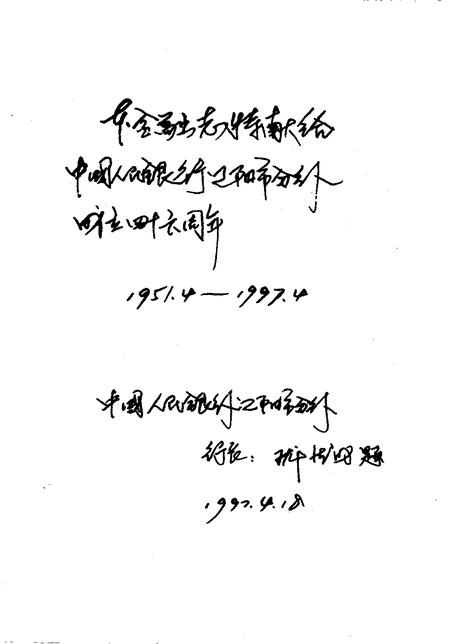 本金融志特献给
中国人民银行辽阳市分行
成立四十六周年
1951.4—1997.4
中國人民銀行辽阳市分行
行长： 题
1997.4.18